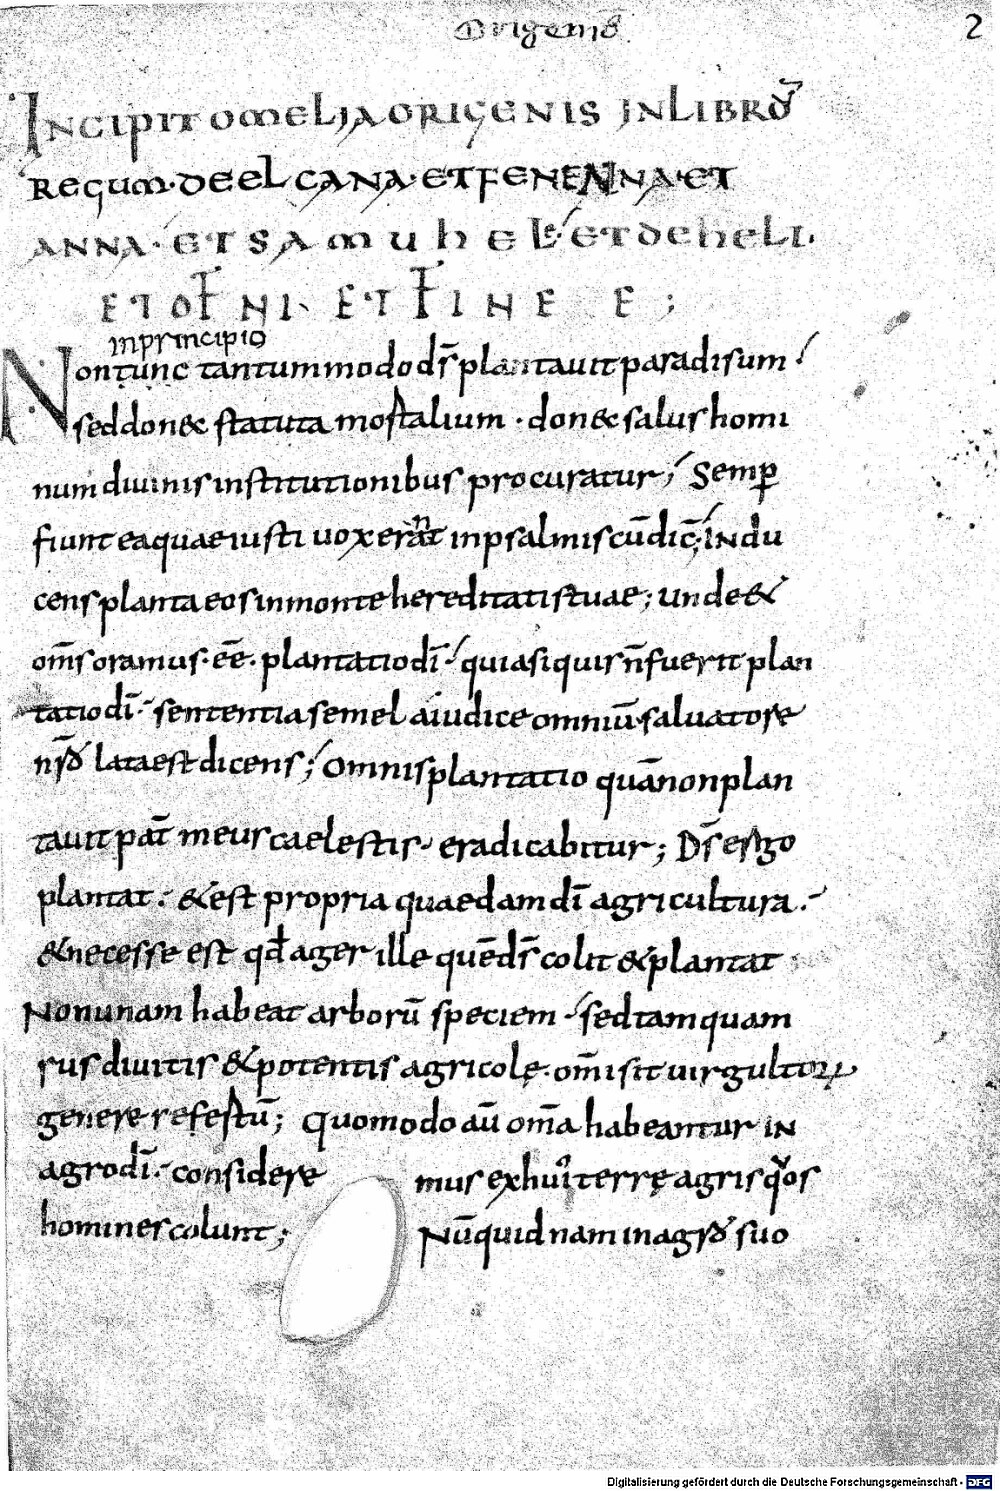 Origenis
2
INCIPIT OMELIA ORIGENIS IN LIBRŌ
REGUM· DE ELCANA· ET FENENNA· ET
ANNA· ET SAMUHELE· ET DE HELI.
ET OFNI· ET FINEE;
in principio
Non tunc tantummodo d̄s plantauit paradisum
sed donec statuta mostalium · donec salus homi
num diuinis institutionibus procuratur; Semp̄
fiunt ea quae iusti uox erant in psalmis cū dic̄; Indu
cens planta eos in monte hereditatis tuae; unde &
om̄s oramus· ēē· plantatio dī· quia si quis n̄ fuerit plan
tatio dī· sententia semel a iudice omniū saluatore
nr̄o lata est dicens; Omnis plantatio quā non plan
tauit pat̄ meus caelestis· eradicabitur; Ds̄ ergo
plantat· & est propria quaedam dī agricultura·
& necesse est qd̄ ager ille quē ds̄ colit & plantat
Non unam habeat arborū speciem· sed tamquam
rus diuitis & potentis agricolę· om̄i sit uirgultorꝝ
genere refertū; Quomodo aū om̄a habeantur in
agro dī· considere mus ex hui' terrę agris quos
homines colunt; Nūquidnam in agro suo
Digitalisierung gefördert durch die Deutsche Forschungsgemeinschaft - DFG